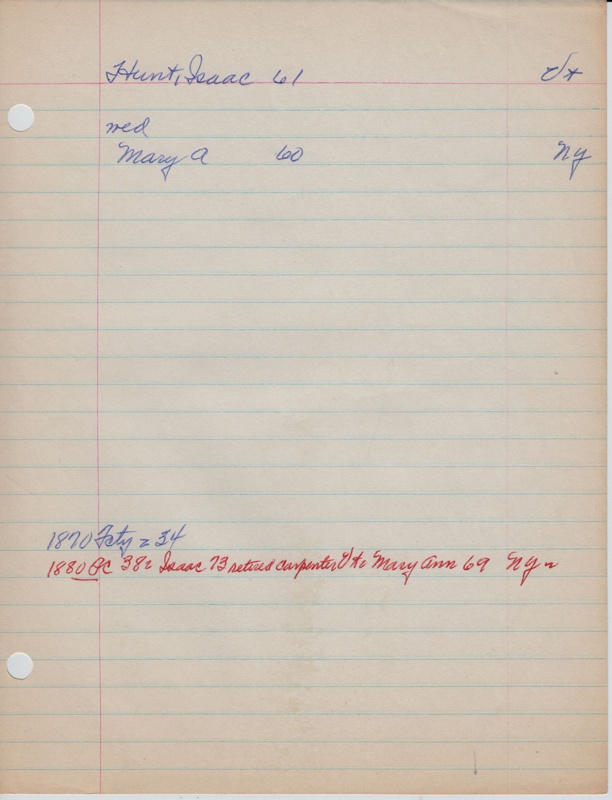 Hunt, Isaac 61 Vt
wed
Mary A 60 Ny
1870 Fcty = 34
1880 FC 38 = Isaac 73 retired carpenter Vt = Mary Ann 69 NY =